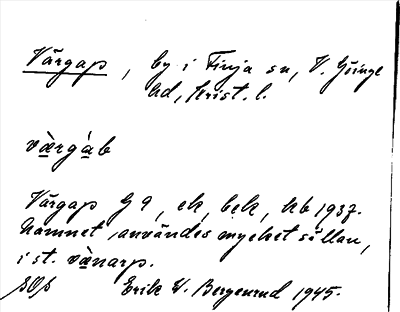 Vårgap, by i Finja sn, V. Göinge
hd, Krist. l.
vàrgàb
Vårgap G 9, ek, bek, hb 1937.
Namnet användes mycket sällan,
i st. vànarp.
Erik W. Bergenrud 1945.